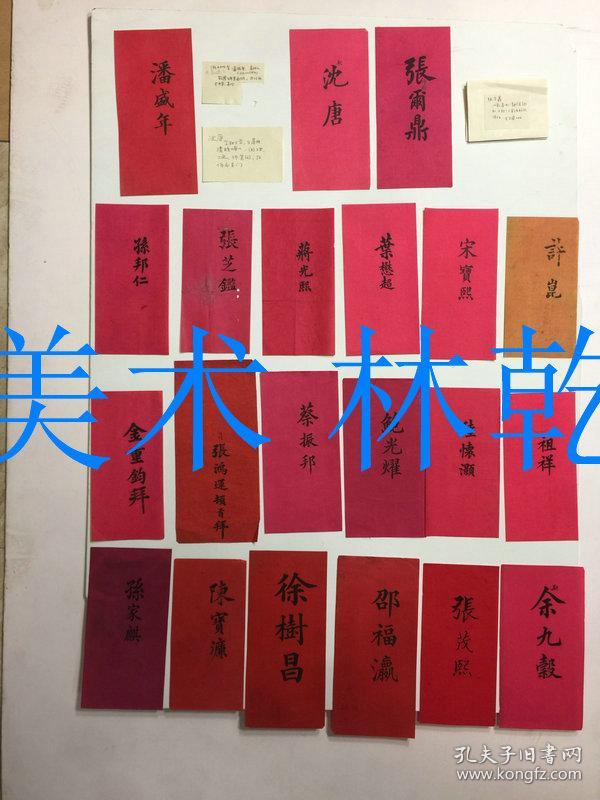 潘盛年
沈唐
張爾鼎
孫邦仁
張芝鑑
蔣光熙
葉懋超
宋寶熙
許崑
美术 林乾
金重鈞拜
張鴻運頓首拜
蔡振邦
鮑光耀
懷灝
祖祥
孫家麒
陳寶濂
徐樹昌
邵福瀛
張茂熙
余九穀
孔夫子旧书网
www.kongfz.com